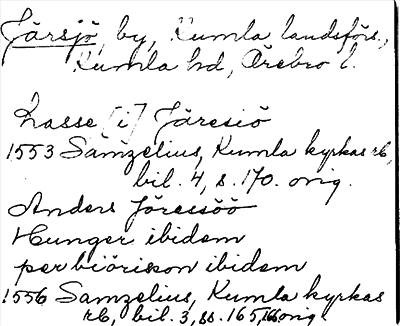 Järsjö, by, Kumla landsförs.,
Kumla hd, Örebro l.
Lasse [i] Järesiö
1553 Samzelius, Kumla kyrkas rb,
bil. 4, s. 170. orig.
Anders Järessöö
Hunger ibidem
per biörsson ibidem
1556 Samzelius, Kumla kyrkas
rb, bil. 3, ss. 165, 166 orig.